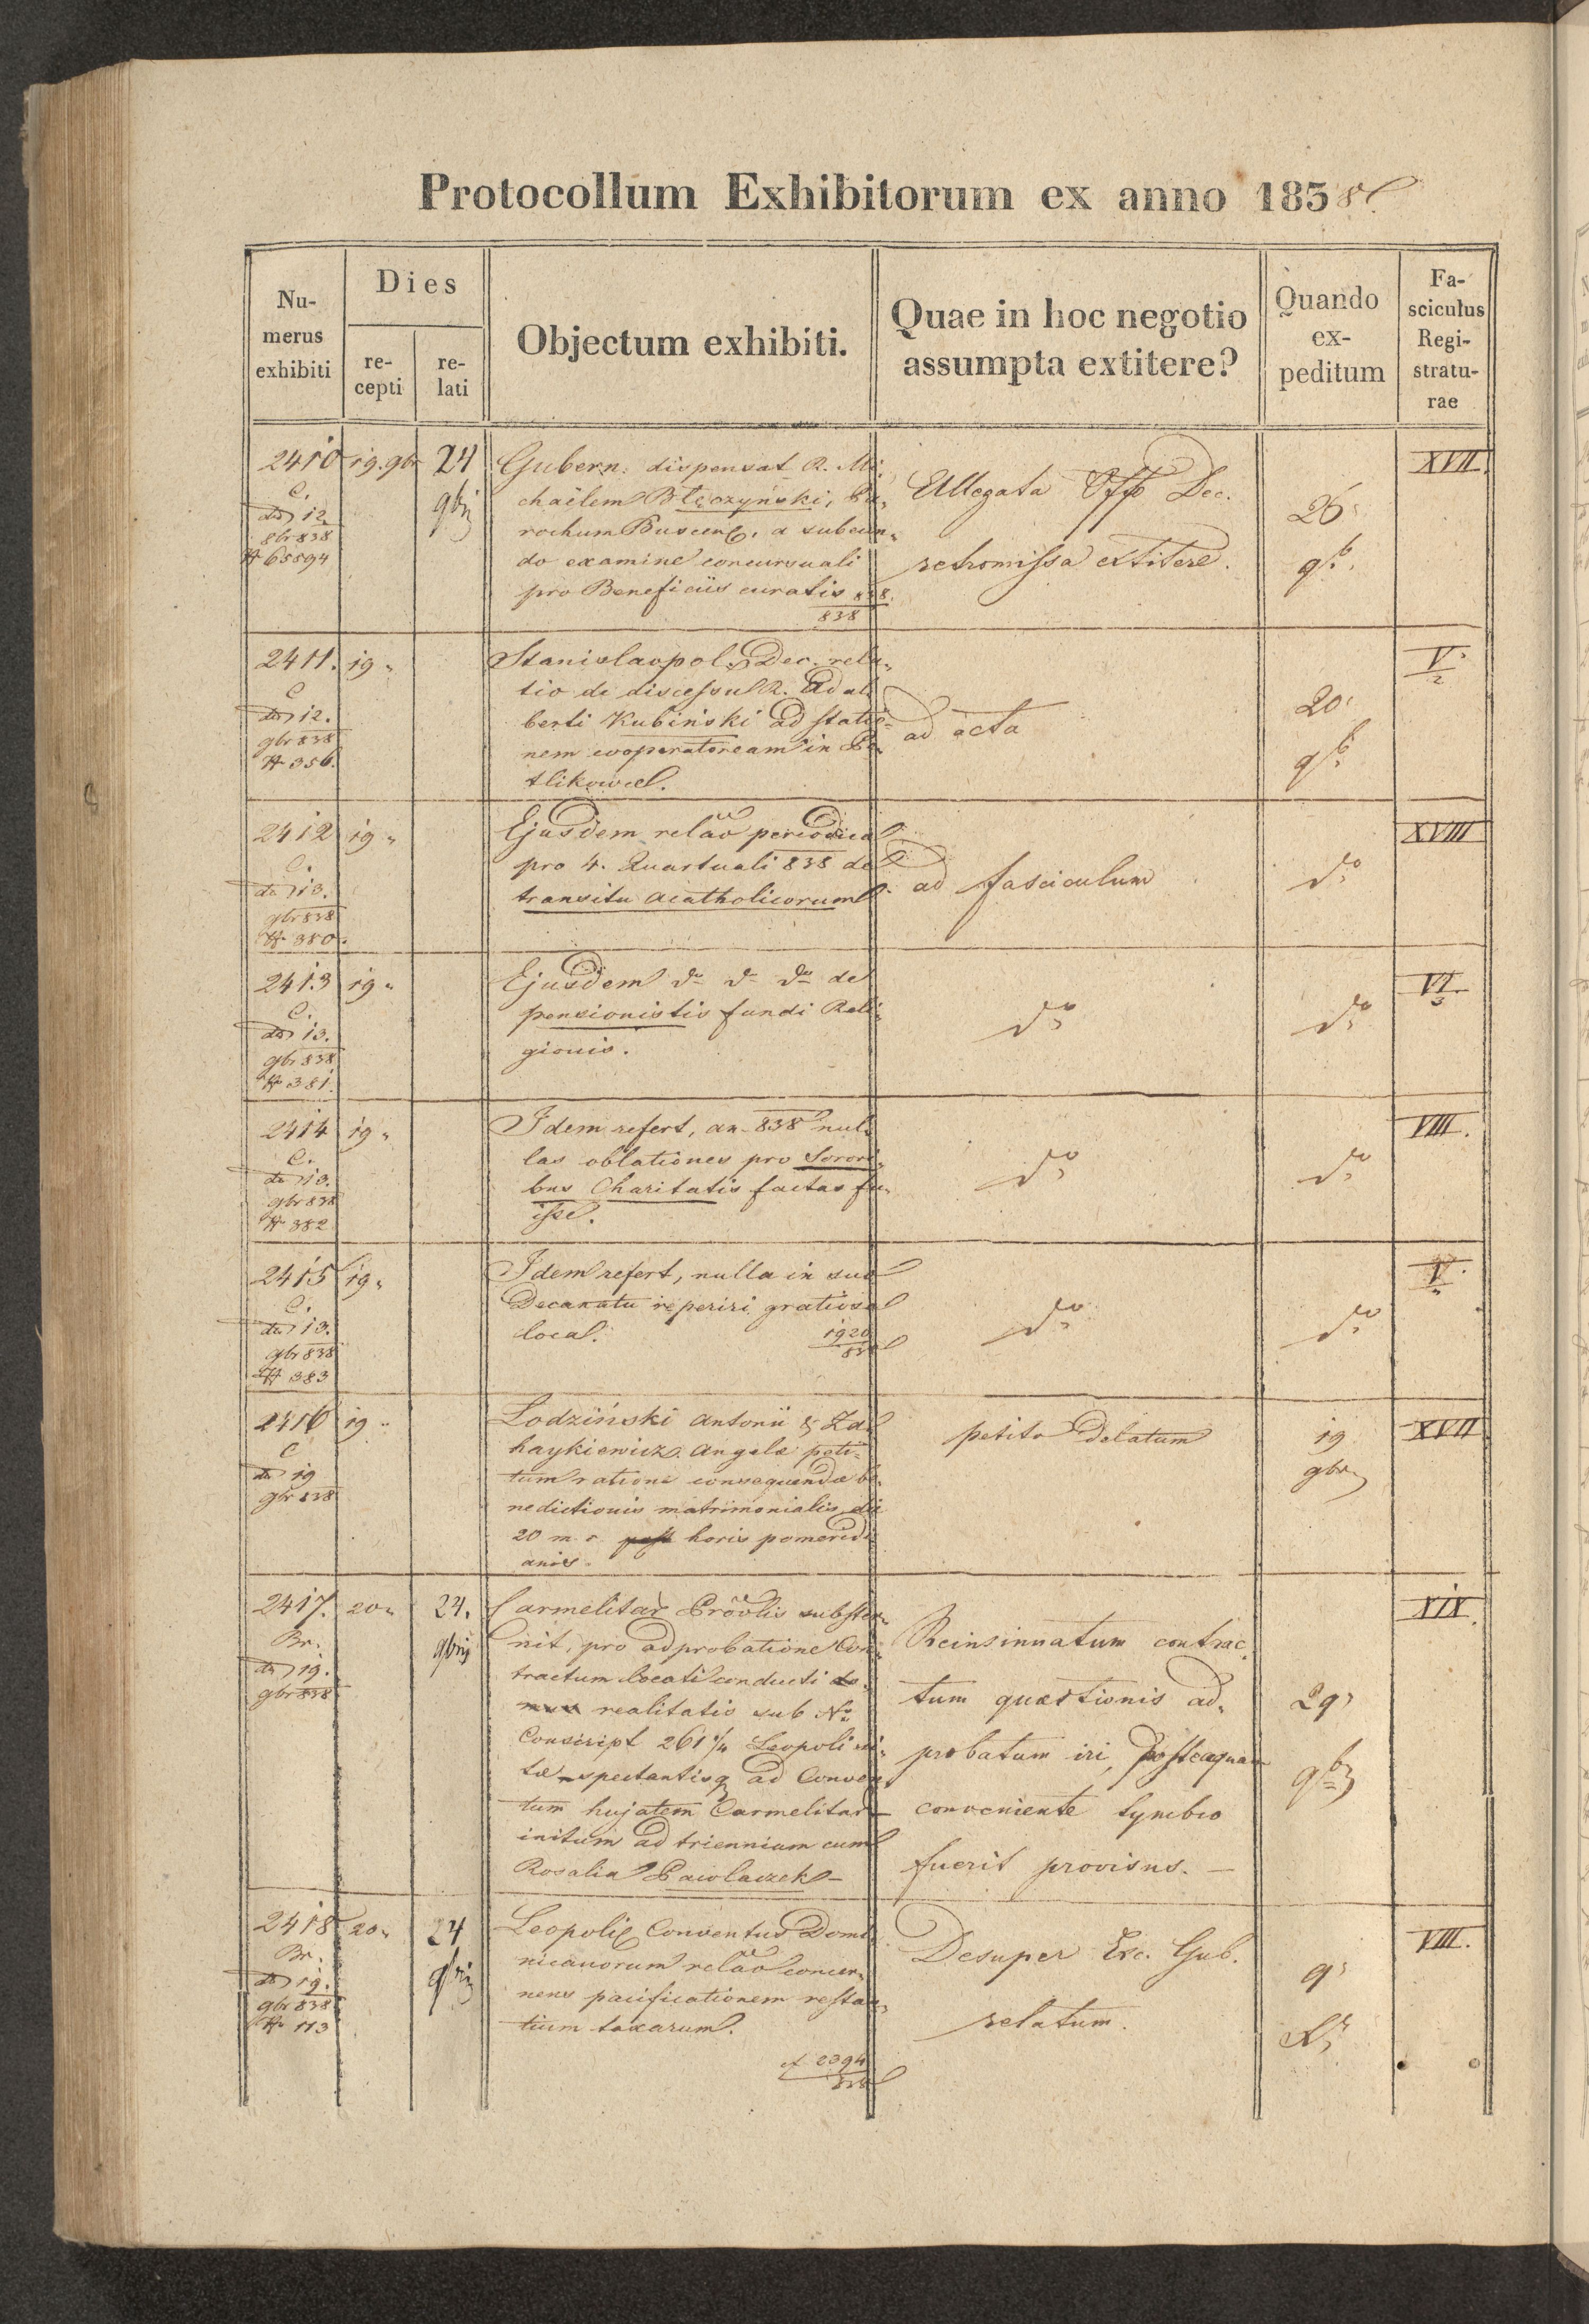 Protocollum Exhibitorum ex anno 1838.
Nu-
merus
exhibiti
Dies
re-
cepti
re-
lati
Objectum exhibiti.
Quae in hoc negotio
assumpta extitere?
Quando
ex-
peditum
Fa-
sciculus
Regi-
stratu-
rae
2410
C.
dd 12
8br 838
№ 65594
19. 9br
24
9br
Gubern. dispensat R. Mi-
chaëlem Błęczyński, Pa-
rochum Buscen, a subeun-
do examine concursuali
pro Beneficiis curatis 838.
838
Allegata Offo Dec.
retromissa extitere.
26
9b.
XVII.
2411.
C
dd 12.
9br 838
№ 356.
19
Stanislaopol. Dec. rela-
tio de discessu R. Adal-
berti Kubiński ad statio-
nem cooperatoream in Pe-
tlikowce.
ad acta
20
9b
V.
2
2412
C.
dd 13.
9br 838
№ 380.
19
Ejusdem relao periodica
pro 4. Quartuali 838 de
transitu acatholicorum
ad fasciculum
do
XVIII
2413
C.
dd 13.
9br 838
№ 381.
19
Ejusdem do do do de
pensionistis fundi Reli-
gionis.
do
do
VI.
3
2414
C.
dd 13.
9br 838
№ 382
19
Idem refert, an. 838 nul-
las oblationes pro Sorori-
bus Charitatis factas fu-
isse.
do
do
VIII.
2415
C.
dd 13.
9br 838
№ 383
19
Idem refert, nulla in suo
Decanatu reperiri gratiosa
loca.
1920
838
do
do
V.
2416
C
dd 19
9br 838
19
Lodziński Antonii & Za-
haykiewicz Angelae peti-
tum ratione consequendae be-
nedictionis matrimonialis die
20 m. c. post horis pomeridi-
anis.
petito delatum
19
9br
XVII
2417.
Br.
dd 19.
9br 838
20
24.
9br
Carmelitar Provlis subster-
nit, pro adprobatione Con-
tractum locati conducti do-
mus realitatis sub No
Conscript 261 1/4 Leopoli si-
tae spectantisq ad Conven-
tum hujatem Carmelitar
initum ad triennium cum
Rosalia Pawlaczek
Reinsinuatum contrac-
tum quaestionis ad-
probatum iri, posteaquam
conveniente Symbro
fuerit provisus.
29
9b
XIX
2418
Br.
dd 19.
9br 838
№ 113
20
24
9br
Leopoli Conventus Domi-
nicanorum relao concer-
nens pacificationem restan-
tium taxarum.
ad 2394
838
Desuper Exc. Gub.
relatum.
9
Xr
VIII.